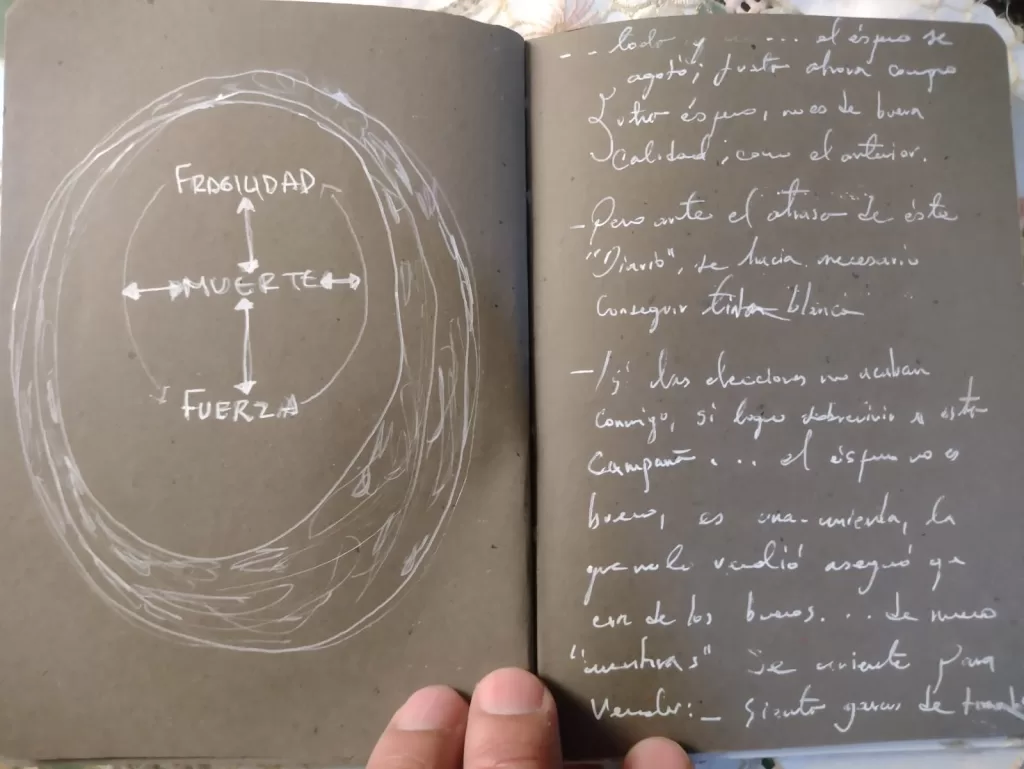 FRAGILIDAD
MUERTE
FUERZA
-.. lodo y ... el ésfero se
agotó; justo ahora compro
otro ésfero, no es de buena
calidad; como el anterior.
- Pero ante el atraso de éste
"Diario", se hacía necesario
conseguir tinta blanca
- si las elecciones no acaban
conmigo, si logro sobrevivir a esta
campaña ... el ésfero no es
bueno, es una mierda, la
que me lo vendió aseguró q'
era de los buenos... de nuevo
"mentiras" se miente para
vender:- siento ganas de